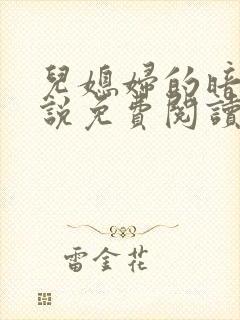 兒媳婦的暗
說免費閱讀
雷金花